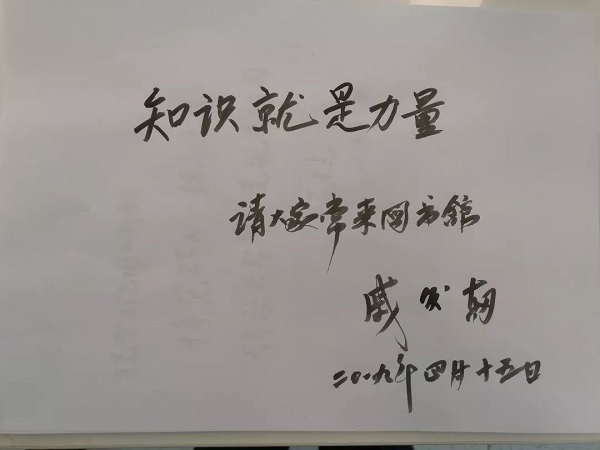 知识就是力量
请大家常来图书馆
戚发轫
二〇一九年四月十五日